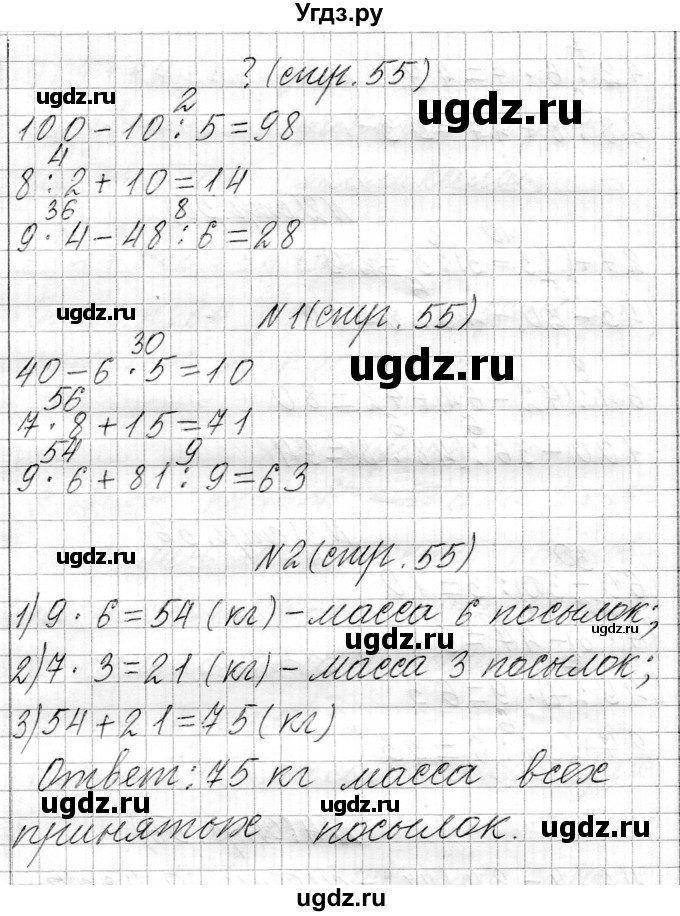 Угдз.ру
? (стр. 55)
ugdz.ru
ugdz.ru
2
100 - 10 : 5 = 98
4
8 : 2 + 10 = 14
36 8
9 · 4 - 48 : 6 = 28
ugdz.ru
N1 (стр. 55)
ugdz.ru
30
40 - 6 · 5 = 10
56
7 · 8 + 15 = 71
54 9
9 · 6 + 81 : 9 = 63
ugdz.ru
N2 (стр. 55)
1) 9 · 6 = 54 (кг) - масса 6 посылок;
ugdz.ru
ugdz.ru
2) 7 · 3 = 21 (кг) - масса 3 посылок;
3) 54 + 21 = 75 (кг)
Ответ: 75 кг масса всех
ugdz.ru
ugdz.ru
ugdz.ru
принятых посылок.
Угдз.ру